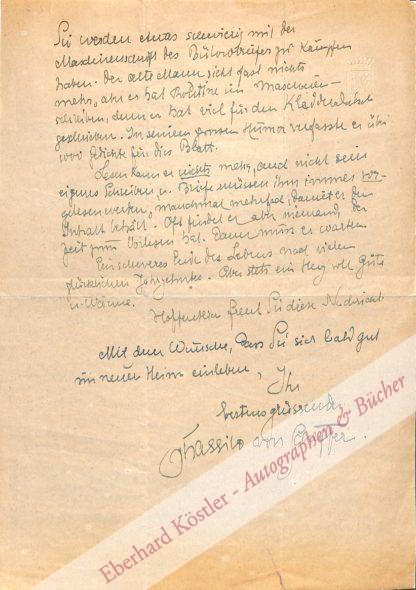 Sie werden etwas schwierig mit der
Maschinenschrift des Bülowbriefes zu kämpfen
haben. Der alte Mann sieht fast nichts
mehr, aber er hat Routine im Maschinen-
schreiben, denn er hat viel für den Kladderadatsch
geschrieben. In seinem grossen Humor verfasste er über
1000 Gedichte für dies Blatt.
Lesen kann er nichts mehr, auch nicht sein
eigenes Schreiben u. Briefe müssen ihm immer vor-
gelesen werden, manchmal mehrfach, damit er den
Inhalt behält. Oft findet er aber niemand, der
Zeit zum Vorlesen hat. Dann muss er warten.
Ein schweres Ende des Lebens nach vielen
glücklichen Jahrzehnten. Aber stets ein Herz voll Güte
u. Wärme.
Hoffentlich freut Sie diese Nachricht.
Mit dem Wunsche, dass Sie sich bald gut
im neuen Heim einleben, Ihr
bestens grüssender
Thassilo von
Eberhard Köstler - Autographen & Bücher